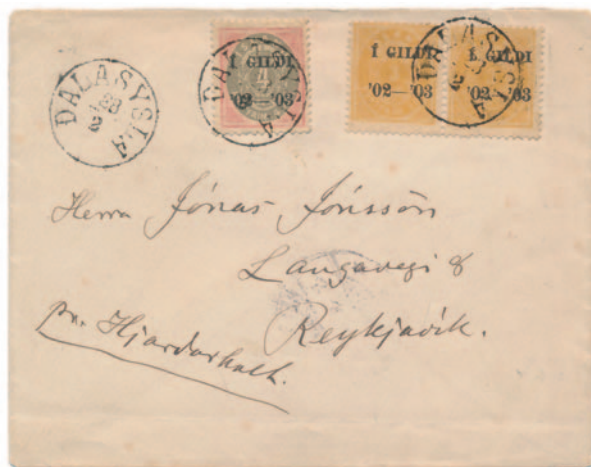 DALASYSLA
28
2
Í GILDI
4
'02—'03
DALASYSLA
Í GILDI
'02—'03
Í GILDI
'02—'03
DALASYSLA
2
Herra Jónas Jónsson
Laugavegi 8
Reykjavík.
pr. Hjardarholt.